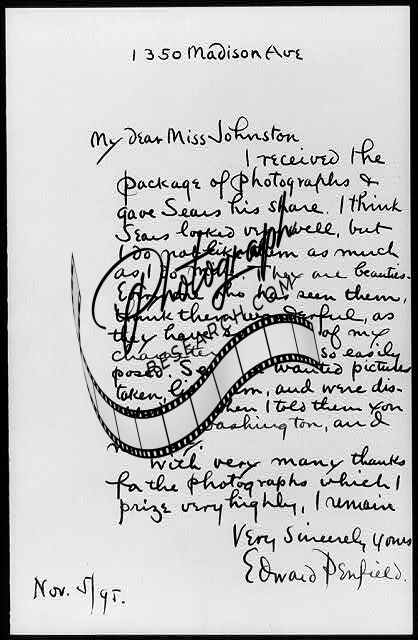 1350 Madison Ave
My dear Miss Johnston
I received the
package of photographs &
gave Sears his share. I think
Sears looked very well, but
I do not like them as much
as I do mine. They are beauties.
Everyone who has seen them,
think them wonderful, as
they have of my
character so easily
posed. wanted pictures
taken, and were dis-
when I told them you
Washington, and
With very many thanks
for the photographs which I
prize very highly, I remain
Very Sincerely yours
Edward Penfield.
Nov. 5/95.
Photograph
RESEARCH.COM